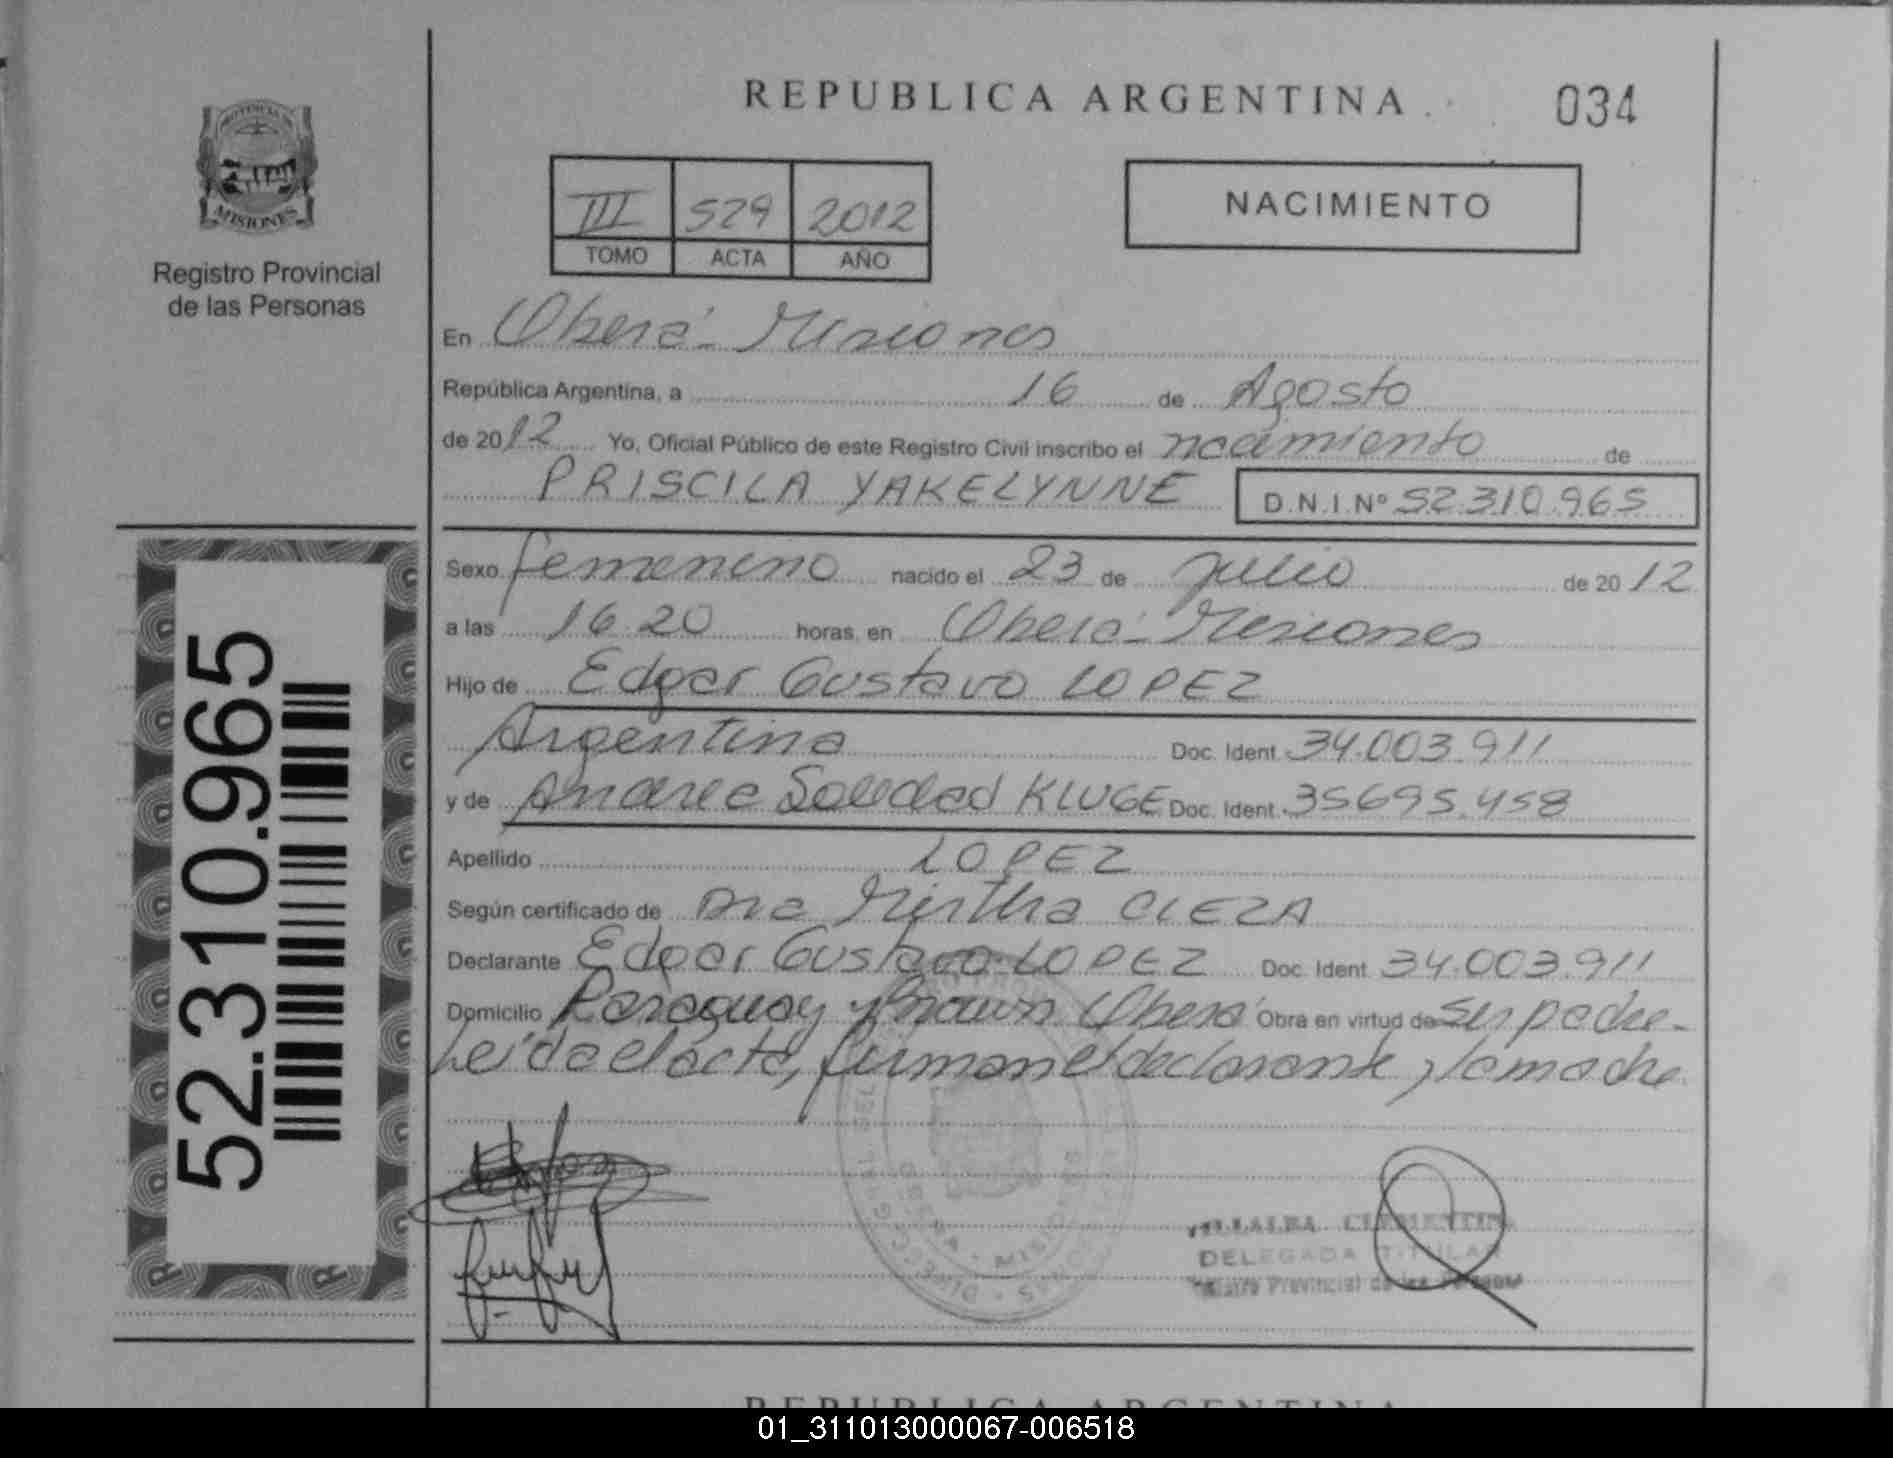 REPUBLICA ARGENTINA
034
PROVINCIA DE
MISIONES
Registro Provincial
de las Personas
III 529 2012
TOMO ACTA AÑO
NACIMIENTO
En Oberá - Misiones
República Argentina, a 16 de Agosto
de 2012 Yo, Oficial Público de este Registro Civil inscribo el nacimiento de
PRISCILA YAKELYNNE D.N.I.Nº 52.310.965
Sexo femenino nacido el 23 de Julio de 2012
a las 16 20 horas, en Oberá - Misiones
Hijo de Edgar Gustavo LOPEZ
Argentina Doc. Ident. 34.003.911
y de Andrea Soledad KLUGE Doc. Ident. 35695.458
Apellido LOPEZ
Según certificado de Dra Mirtha CIEZA
Declarante Edgar Gustavo LOPEZ Doc. Ident. 34.003.911
Domicilio Paraguay y Brown Oberá Obra en virtud de ser padre -
Leída el acta, firman el declarante y la madre
52.310.965
OBERA - MISIONES
VILLALBA CLEMENTINA
DELEGADA TITULAR
Registro Provincial de las Personas
REPUBLICA ARGENTINA
01_311013000067-006518